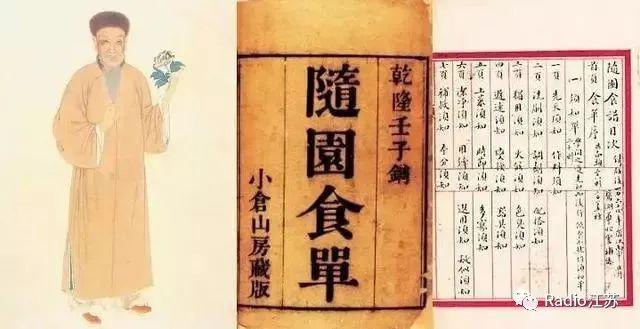 乾隆壬子鐫
隨園食單
小倉山房藏版
隨園食譜目次
首頁 食單序
一 須知單
一頁 先天須知 作料須知
二頁 洗刷須知 調劑須知 配搭須知
三頁 獨用須知 火候須知 色臭須知
四頁 遲速須知 變換須知 器具須知
五頁 上菜須知 時節須知 多寡須知
六頁 潔淨須知 選用須知
七頁 補救須知 本分須知
Radio江苏